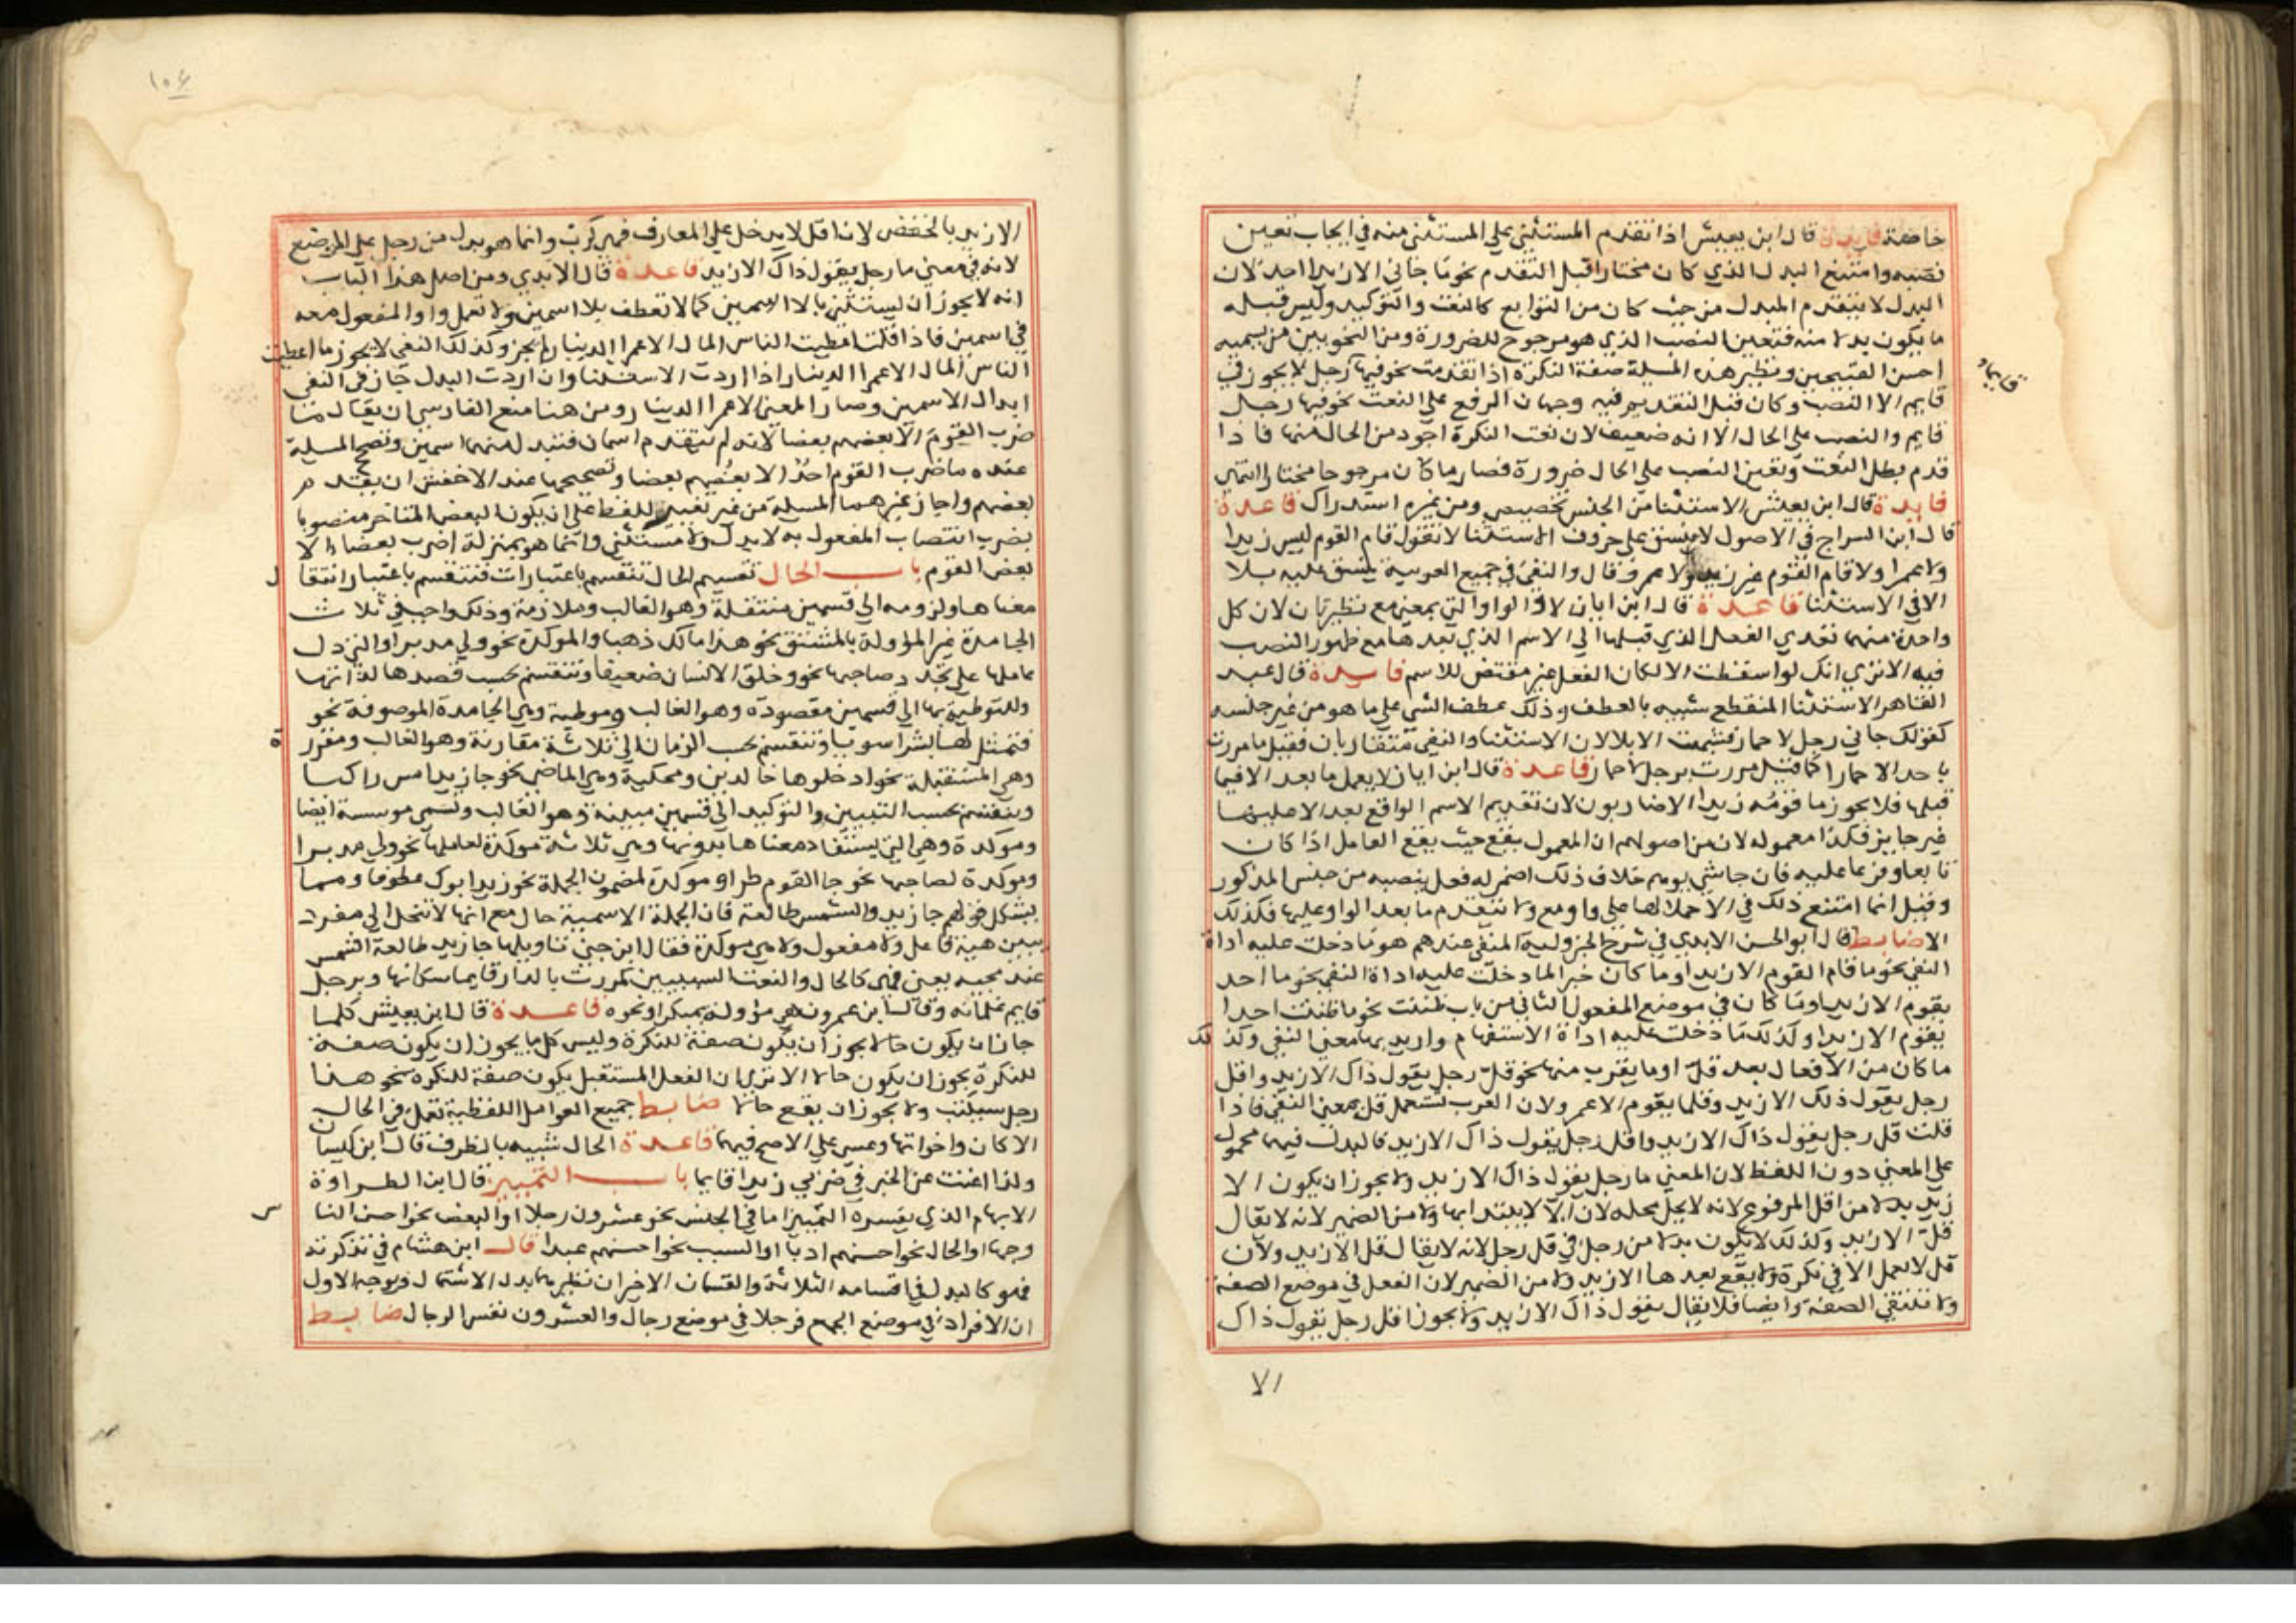 خاصة فايدة قال ابن يعيش اذا تقدم المستثني علي المستثني منه في ايجاب تعين
نصبه وامتنع البدل الذي كان مختارا قبل التقدم نحو ما جاني الا زيدا احد لان
البدل لا يتقدم المبدل من حيث كان من التوابع كالنعت والتوكيد وليس قبله
ما يكون بدلا منه فتعين النصب الذي هو مرجوح للضرورة ومن النحويين من يسميه
احسن القبيحين ونظير هذه المسيلة صفة النكرة اذا تقدمت نحو فيها رجل لا يجوز في
قايما
قايم الا النصب وكان قبل التقديم فيه وجهان الرفع علي النعت نحو فيها رجل
قايم والنصب علي الحال الا انه ضعيف لان نعت النكرة اجود من الحال منها فاذا
قدم بطل النعت وتعين النصب علي الحال ضرورة فصار ما كان مرجوحا مختارا انتهي
فايدة قال ابن يعيش الاستثنا من الجنس تخصيص ومن غيره استدراك قاعدة
قال ابن السراج في الاصول لا ينسق علي حروف الاستثنا لا تقول قام القوم ليس زيدا
ولا عمرا ولا قام القوم غير زيد ولا عمرو قال والنفي في جميع العربية ينسق عليه بلا
الا في الاستثنا قاعدة قال ابن ابان لا والواو التي بمعني مع نظيرتان لان كل
واحدة منهما تعدي الفعل الذي قبلها الي الاسم الذي بعدها مع ظهور النصب
فيه الا تري انك لو اسقطت الا لكان الفعل غير مقتض للاسم فايدة قال عبد
القاهر الاستثنا المنقطع شبيه بالعطف وذلك عطف الشي علي ما هو من غير جنسه
كقولك جاني رجل لا حمار فشبهت الا بلا لان الاستثنا والنفي متقاربان فقيل ما مررت
باحد الا حمارا كما قيل مررت برجل لا حمار قاعدة قال ابن ابان لا يعمل ما بعد الا فيما
قبلها فلا يجوز ما قومه زيدا الا ضاربون لان تقديم الاسم الواقع بعد الا عليها
غير جايز فكذا معموله لان من اصولهم ان المعمول يقع حيث يقع العامل اذا كان
تابعا وفرعا عليه فان جا شي يوهم خلاف ذلك اضمر له فعل ينصبه من جنس المذكور
وقيل انما امتنع ذلك في الا حملا لها علي واو مع ولا يتقدم ما بعد الواو عليها فكذلك
الا ضابط قال ابو الحسن الابدي في شرح الجزولية المنفي عندهم هو ما دخلت عليه اداة
النفي نحو ما قام القوم الا زيد او ما كان خبرا لما دخلت عليه اداة النفي نحو ما احد
يقوم الا زيد او ما كان في موضع المفعول الثاني من باب ظننت نحو ما ظننت احدا
يقوم الا زيدا وكذلك ما دخلت عليه اداة الاستفهام واريد بها معني النفي وكذلك
ما كان من الافعال بعد قل او ما يقرب منها نحو قل رجل يقول ذاك الا زيد واقل
رجل يقول ذلك الا زيد وقلما يقوم الا عمرو لان العرب تستعمل قل بمعني النفي فاذا
قلت قل رجل يقول ذاك الا زيد واقل رجل يقول ذاك الا زيد فالبدل فيهما محمول
علي المعني دون اللفظ لان المعني ما رجل يقول ذاك الا زيد ولا يجوز ان يكون الا
زيد بدلا من اقل المرفوع لانه لا يحل محله لان الا لا يبتدا بها ولا من الضمير لانه لا يقال
قل الا زيد وكذلك لا يكون بدلا من رجل في قل رجل لانه لا يقال قل الا زيد ولان
قل لا يعمل الا في نكرة ولا يقع بعدها الا زيد ولا من الضمير لان الفعل في موضع الصفة
ولا تنتفي الصفة وايضا فلا يقال يقول ذاك الا زيد ولا يجوز اقل رجل يقول ذاك
الا
١٠٤
الا زيد بالخفض لان اقل لا يدخل علي المعارف فهي كرب وانما هو بدل من رجل علي الموضع
لانه في معني ما رجل يقول ذاك الا زيد قاعدة قال الابدي ومن اصل هذا الباب
انه لا يجوز ان يستثني بالا اسمين كما لا تعطف بلا اسمين ولا تعمل واو المفعول معه
في اسمين فاذا قلت اعطيت الناس المال الا عمرا الدينار لم يجز وكذلك النفي لا يجوز ما اعطيت
الناس المال الا عمرا الدينار اذا اردت الاستثنا وان اردت البدل جاز في النفي
ابدال الاسمين وصار المعني الا عمرا الدينار ومن هنا منع الفارسي ان يقال ما
ضرب القوم الا بعضهم بعضا لانه لم يتقدم اسمان فتبدل منهما اسمين وتصح المسيلة
عنده ما ضرب القوم احدا الا بعضهم بعضا وتصحيحها عند الاخفش ان يقدم
بعضهم واجاز غيرهما المسيلة من غير تغيير للفظ علي ان يكون البعض المتاخر منصوبا
بضرب انتصاب المفعول به لا بدل ولا مستثني وانما هو بمنزلة اضرب بعضا الا
بعض القوم باب الحال تقسيم الحال تنقسم باعتبارات فتنقسم باعتبار انتقال
معناها ولزومه الي قسمين منتقلة وهو الغالب وملازمة وذلك واجب في ثلاث
الجامدة غير المؤولة بالمشتق نحو هذا مالك ذهبا والموكدة نحو ولي مدبرا والتي دل
عاملها علي تجدد صاحبها نحو وخلق الانسان ضعيفا وتنقسم بحسب قصدها لذاتها
وللتوطية بها الي قسمين مقصودة وهو الغالب وموطية وهي الجامدة الموصوفة نحو
فتمثل لها بشرا سويا وتنقسم بحسب الزمان الي ثلاثة مقارنة وهو الغالب ومقررة
وهي المستقبلة نحو ادخلوها خالدين ومحكية وهي الماضي نحو جا زيد امس راكبا
وتنقسم بحسب التبيين والتوكيد الي قسمين مبينة وهو الغالب وتسمي موسسة ايضا
وموكدة وهي التي يستفاد معناها بدونها وهي ثلاثة موكدة لعاملها نحو ولي مدبرا
وموكدة لصاحبها نحو جا القوم طرا وموكدة لمضمون الجملة نحو زيد ابوك عطوفا ومما
يشكل قولهم جا زيد والشمس طالعة فان الجملة الاسمية حال مع انها لا تنحل الي مفرد
يبين هية فاعل ولا مفعول ولا هي موكدة فقال ابن جني تاويلها جا زيد طالعة الشمس
عند مجيه يعني فهي كالحال والنعت السببيين كمررت بالدار قايما سكانها وبرجل
قايم غلمانه وقال ابن عمرون هي مؤولة بمبكرا ونحوه قاعدة قال ابن يعيش كلما
جاز ان يكون حالا يجوز ان يكون صفة للنكرة وليس كل ما يجوز ان يكون صفة
للنكرة يجوز ان يكون حالا الا تري ان الفعل المستقبل يكون صفة للنكرة نحو هذا
رجل سيكتب ولا يجوز ان يقع حالا ضابط جميع العوامل اللفظية تعمل في الحال
الا كان واخواتها وعسي علي الاصح فيهما قاعدة الحال شبيه بالظرف قال ابن كيسان
ولذا اغنت عن الخبر في ضربي زيدا قايما باب التمييز قال ابن الطراوة
الابهام الذي يفسره التمييز اما في الجنس نحو عشرون رجلا او البعض نحو احسن الناس
وجها او الحال نحو احسنهم ادبا او السبب نحو احسنهم عبدا قال ابن هشام في تذكرته
فهو كالبدل في اقسامه الثلاثة والقسمان الاخيران نظيرهما بدل الاشتمال ويوجه الاول
ان الافراد في موضع الجمع فرجلا في موضع رجال والعشرون نفس الرجال ضابط